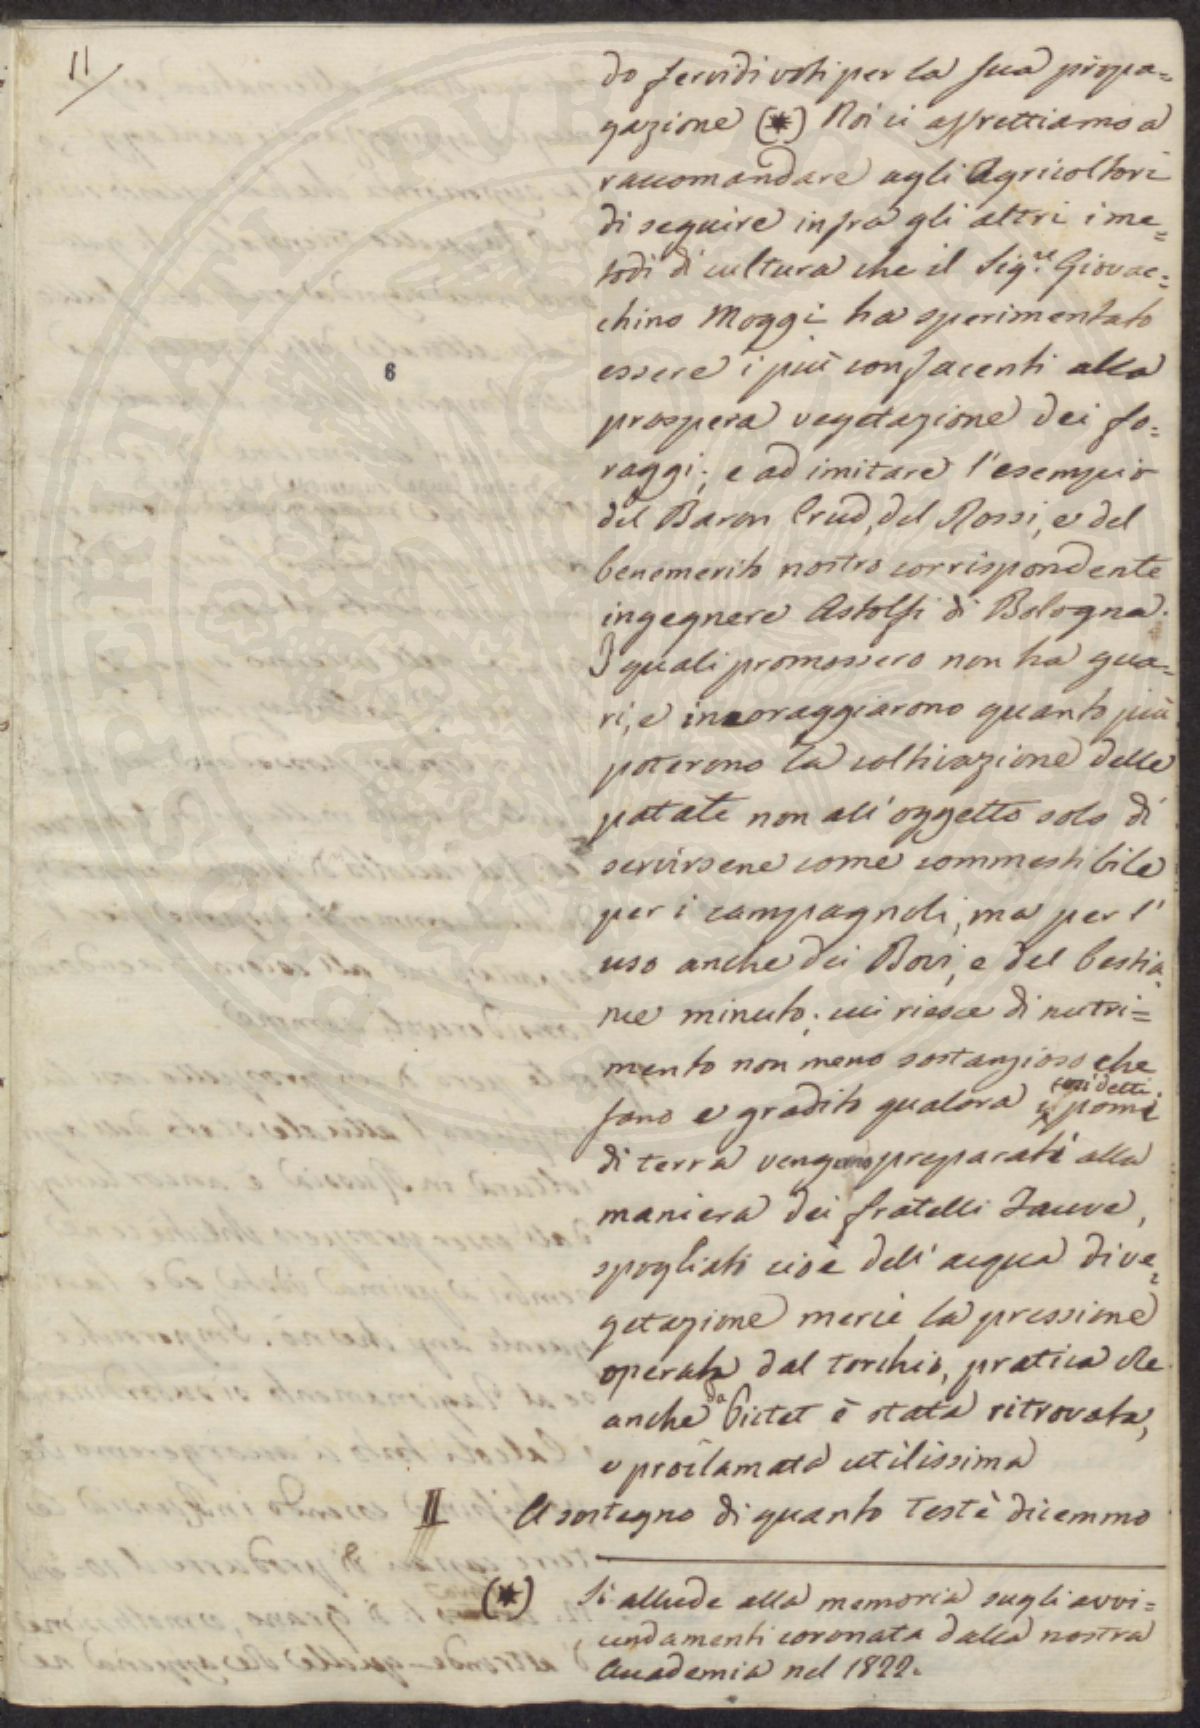 11
do fervidi voti per la sua propa=
gazione (*) Noi ci affrettiamo a
raccomandare agli Agricoltori
di seguire infra gli altri i me=
todi di cultura che il Sig.re Giovac=
chino Moggi ha sperimentato
essere i più confacenti alla
prospera vegetazione dei fo=
raggi; e ad imitare l'esempio
del Baron Crud, del Rossi, e del
benemerito nostro corrispondente
ingegnere Astolfi di Bologna.
I quali promossero non ha gua=
ri, e incoraggiarono quanto più
poterono la coltivazione delle
patate non all'oggetto solo di
servirsene come commestibile
per i campagnoli, ma per l'
uso anche dei Bovi, e del bestia
me minuto; cui riesce di nutri=
mento non meno sostanzioso che
sano e gradito qualora
suddetti
pomi
di terra vengono preparati alla
maniera dei fratelli Jauve,
spogliati cioè dell'acqua di ve=
getazione mercè la pressione
operata dal torchio, pratica che
anche da Pictet è stata ritrovata,
e proclamata utilissima
II A sostegno di quanto testè dicemmo
(*) Si allude alla memoria sugli avvi=
cendamenti coronata dalla nostra
Accademia nel 1822.
6